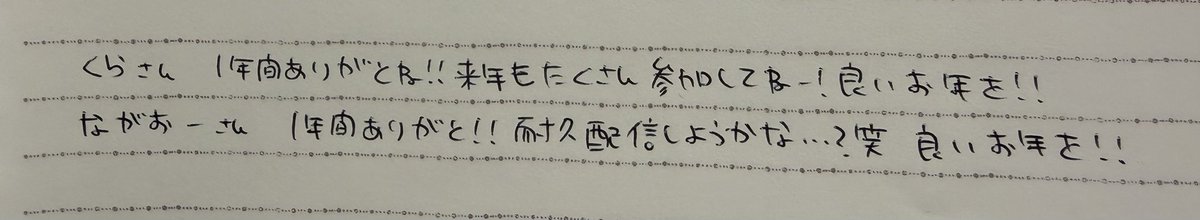 くらさん 1年間ありがとね!!来年もたくさん参加してねー!良いお年を!!
ながおーさん 1年間ありがと!!耐久配信しようかな...?笑 良いお年を!!